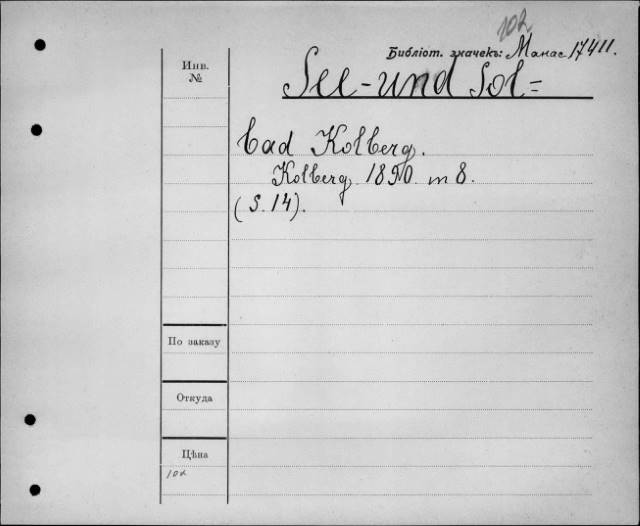 102
Библіот. значекъ: Манас 17411.
Инв.
№
See-und Sol=
bad Kolberg.
Kolberg 1890 m 8.
(S. 14).
По заказу
Откуда
Цѣна
102